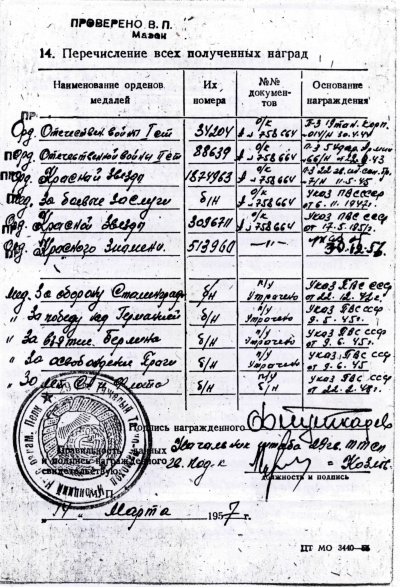 ПРОВЕРЕНО В. П.
14. Перечисление всех полученных наград
Наименование орденов, медалей
Их номера
№№ документов
Основание награждения
Орд. Отечествен войны I ст 34204 о/к А № 758664 30.4.44
Орд. Отечественной войны I ст 88639 о/к А № 758664
Орд. Красной Звезда 1874963 о/к А № 758664 11.5.45
Мед. За боевые заслуги б/н о/к А № 758664 Указ ПВС СССР от 6.11.1947г.
Орд. Красной Звезда о/к А № 758664 Указ ПВС СССР
Орд. Красного Знамени. 513960 —"—
Мед. За оборону Сталинграда б/н п/у Утрачено Указ ПВС СССР от 22.12.42г.
" За победу над Германией б/н п/у Утрачено Указ ПВС СССР 9.5.45г.
" За взятие Берлина б/н п/у Утрачено Указ ПВС СССР 9.6.45г.
" За освобождение Праги б/н п/у Утрачено Указ ПВС СССР 9.6.45г.
" 30 лет С. А. и Флота б/н п/у Указ ПВС СССР от 22.2.48г.
Подпись награжденного
Правильность данных Начальник штаба
и подпись награжденного
свидетельствую:
должность и подпись
М. П.
14 Марта 1957 г.
ЦТ МО 3440—55